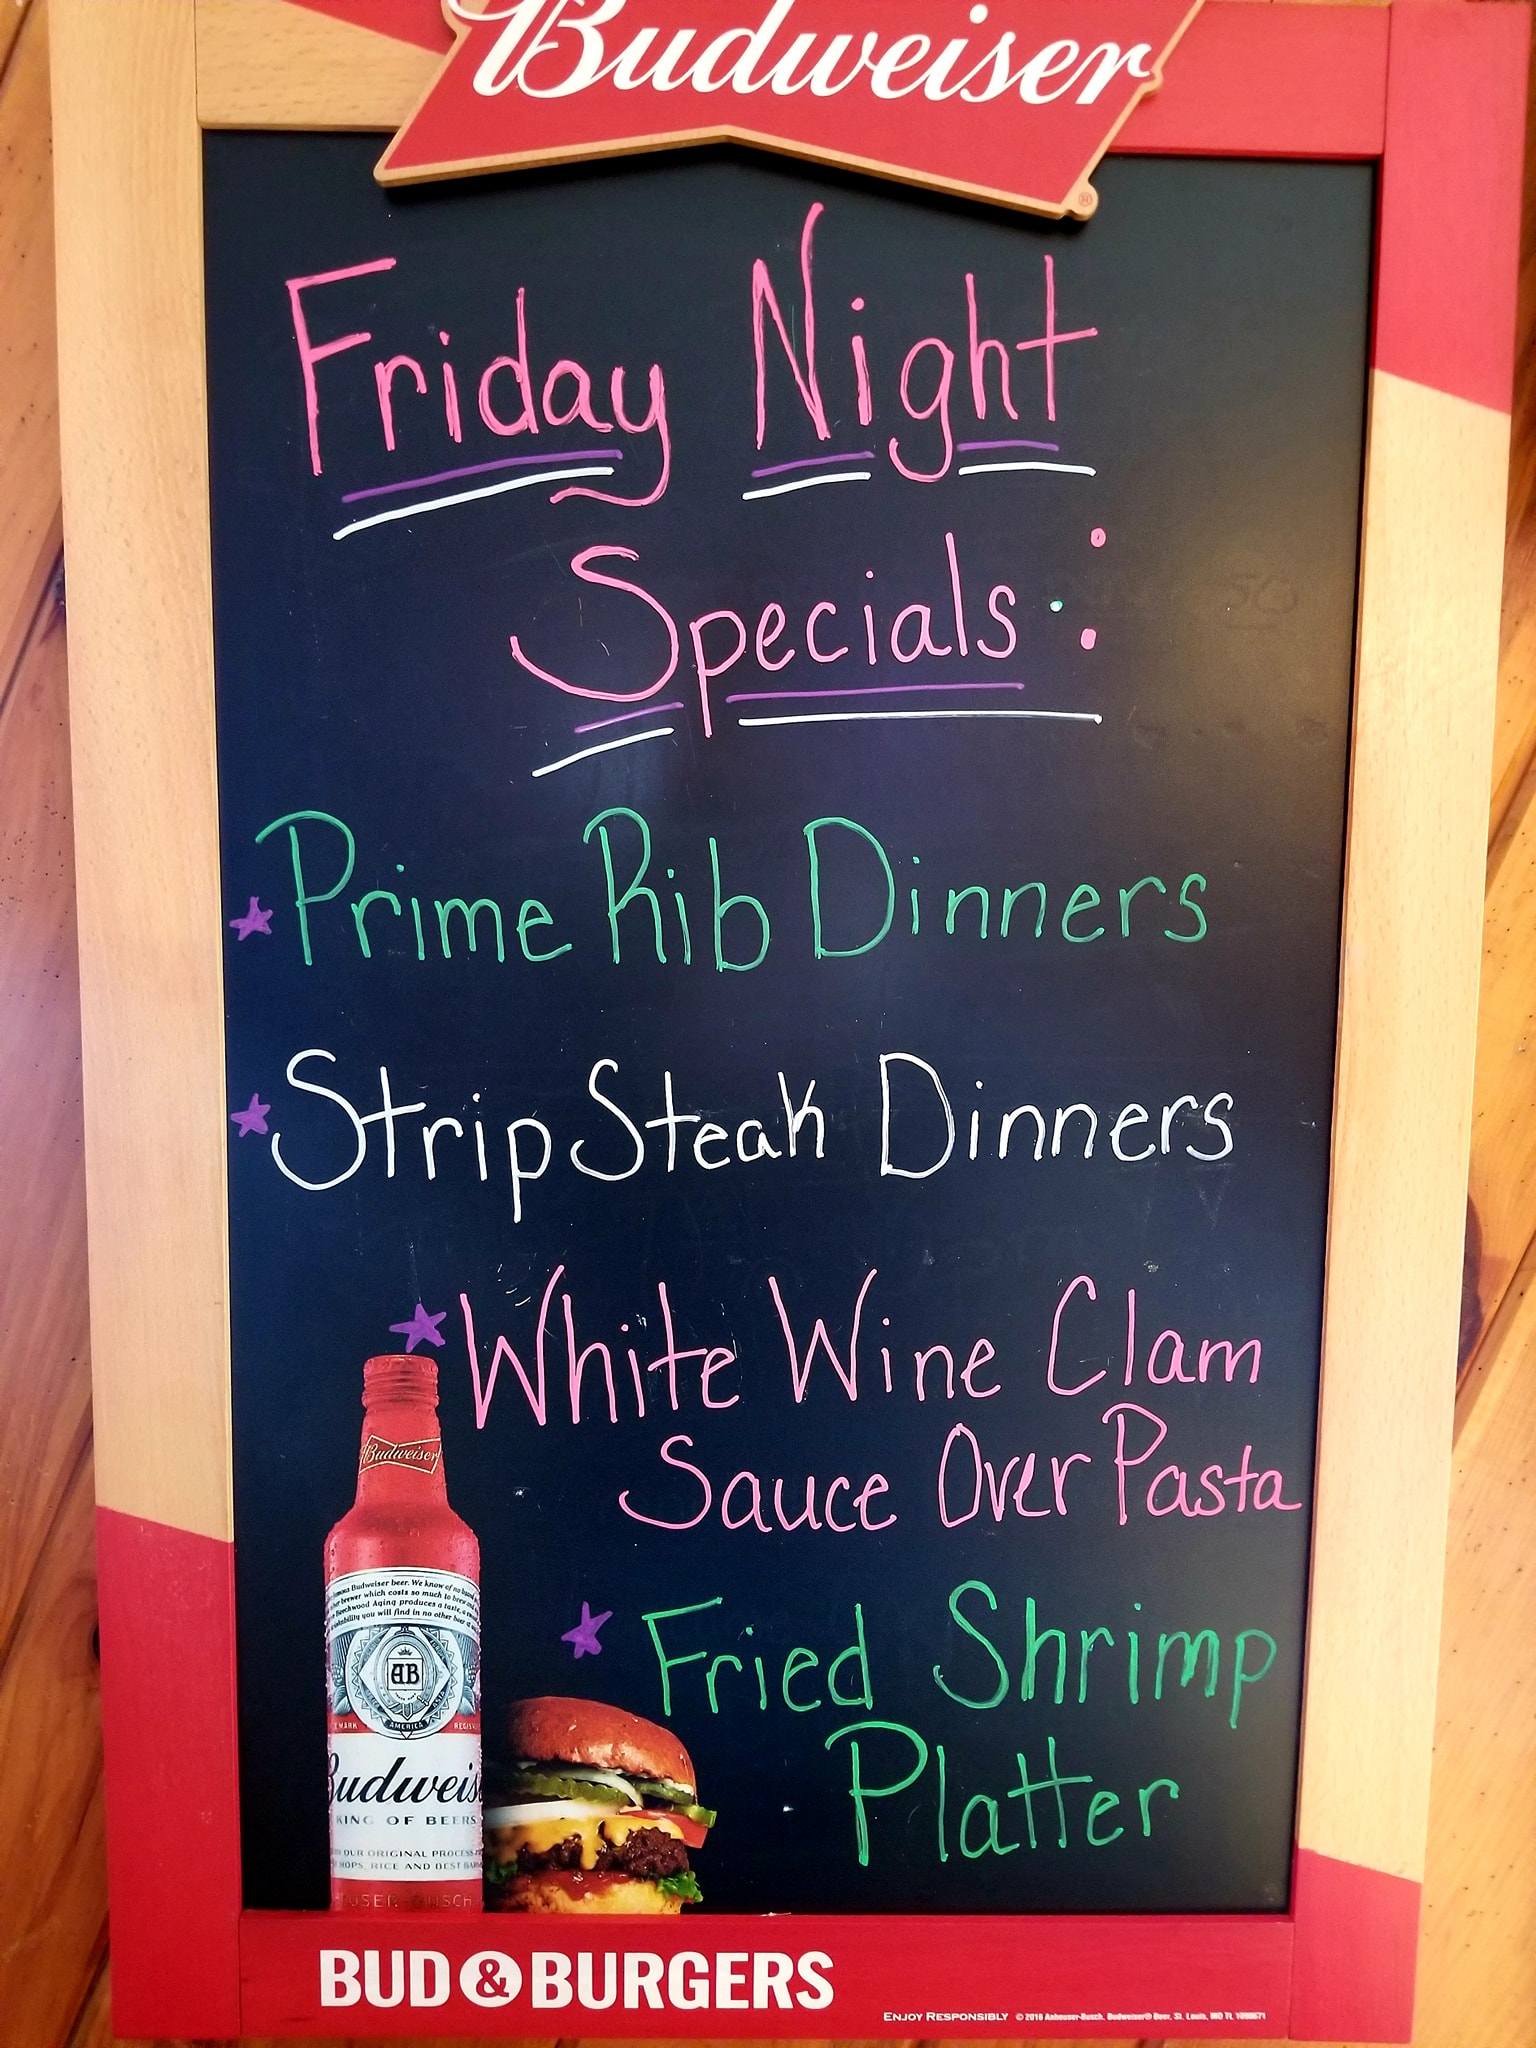 Budweiser
®
Friday Night
Specials:
Prime Rib Dinners
Strip Steak Dinners
White Wine Clam
Sauce Over Pasta
Fried Shrimp
Platter
Budweiser
Budweiser beer. We know of no
brewer which costs so much to brew and
Beechwood Aging produces a taste, a
you will find in no other beer
AB
AMERICA
Budweis
KING OF BEERS
OUR ORIGINAL PROCESS
HOPS, RICE AND BEST
BUD & BURGERS
ENJOY RESPONSIBLY © 2018 Anheuser-Busch, Budweiser® Beer, St. Louis, MO